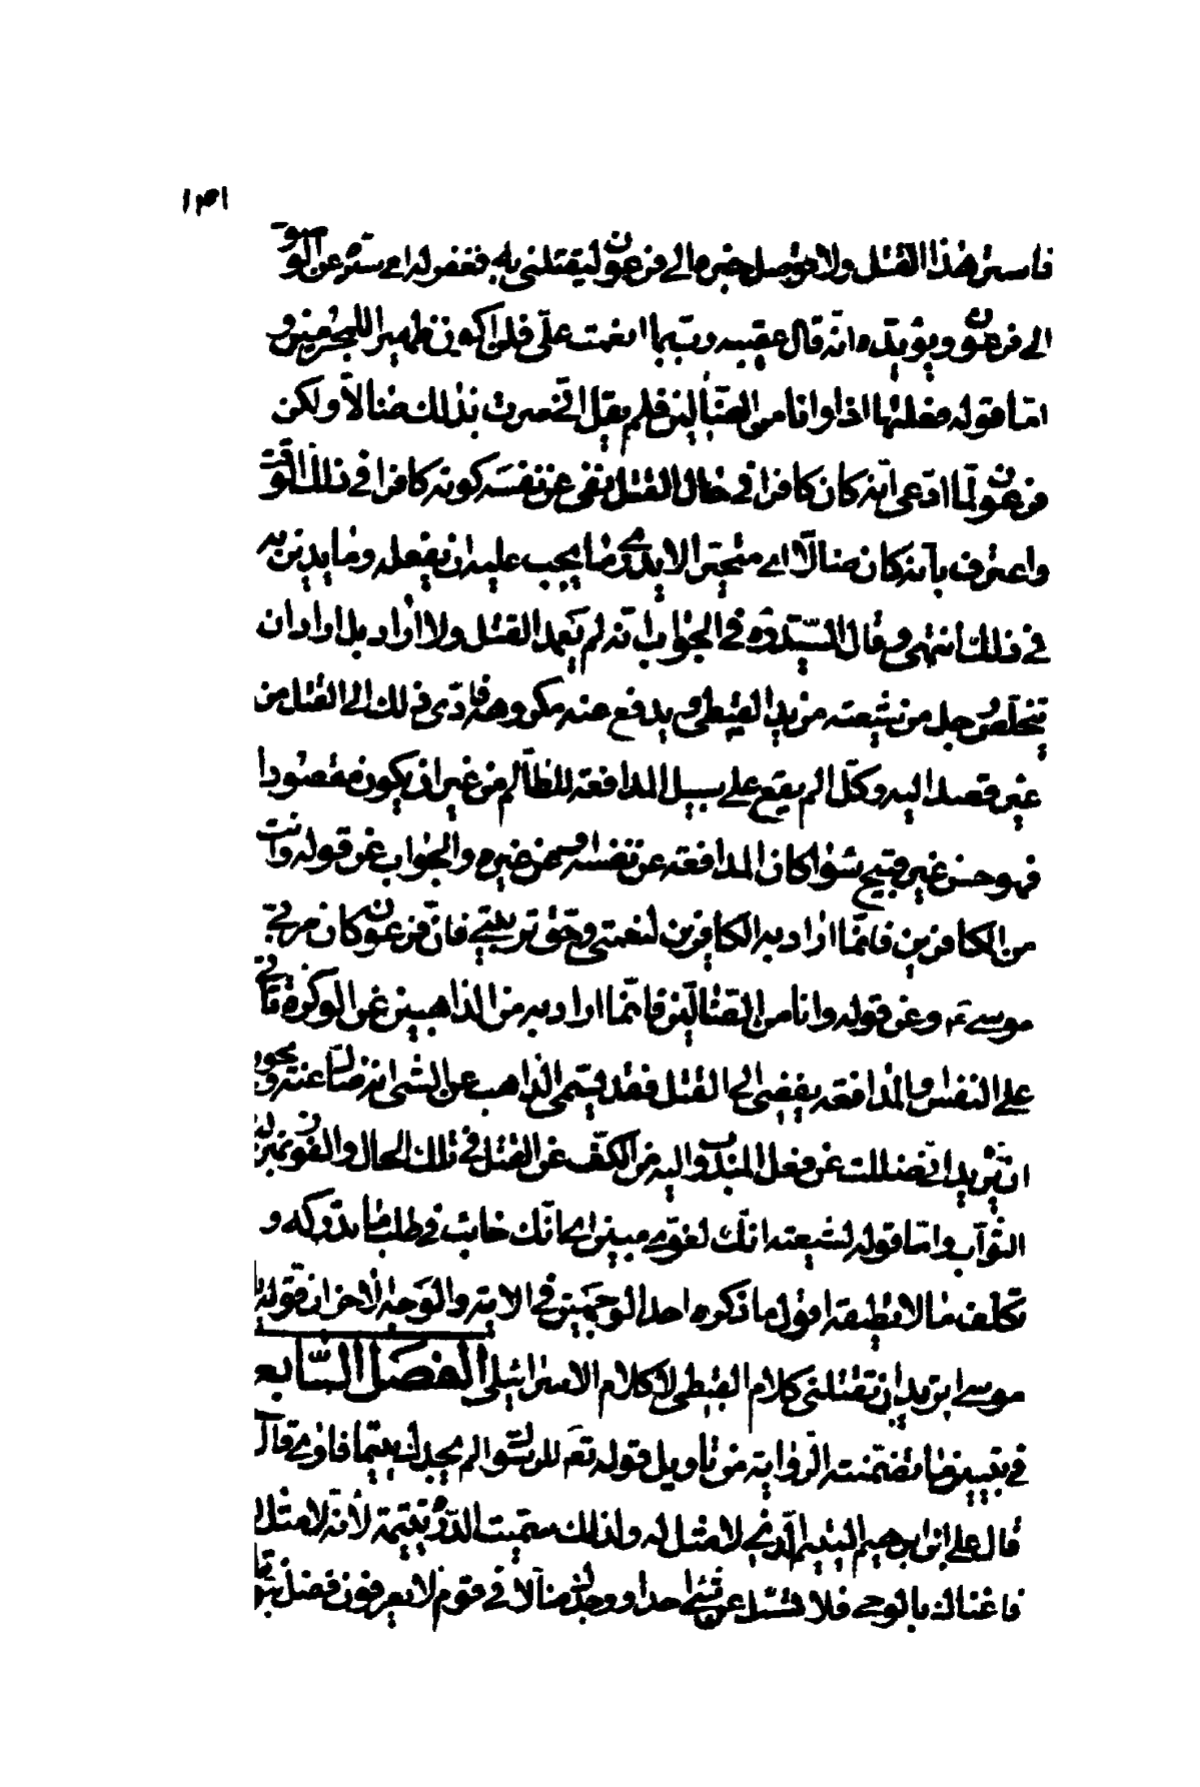 ١٣١
فاستر هذا القتل ولا توصل خبره الى فرعون ليقتلنى به فغفر له اى ستره عن الوصول
الى فرعون ويؤيده انه قال عقيبه رب بما انعمت علىّ فلن اكون ظهيرا للمجرمين و
امّا قوله فعلتها اذا وانا من الضّالين فلم يقل انّى صرت بذلك ضالاّ ولكن
فرعون لمّا ادّعى انّه كان كافرا فى حال القتل نفى عن نفسه كونه كافرا فى ذلك الوقت
واعترف بأنه كان ضالاّ اى متحيّرا لا يدرى ما يجب عليه ان يفعله وما يدين به
فى ذلك انتهى وقال السيّد ره فى الجواب انّه لم يتعمد القتل ولا اراده بل اراد ان
يتخلّص رجل من شيعته من يد القبطى ويدفع عنه مكروهه فادّى ذلك الى القتل من
غير قصد اليه وكلّ الم يقع على سبيل المدافعة للظالم من غير ان يكون مقصودا
فهو حسن غير قبيح سواء كان المدافعة عن نفسه وعن غيره والجواب عن قوله وانت
من الكافرين فانّما اراد به الكافرين لنعمتى وحقّ تربيتى فانّ فرعون كان مربّى
موسى ع وعن قوله وانا من الضّالّين فانّما اراد به من الذاهبين عن الوكزة تأتى
على النفس والمدافعة يفضى الى القتل فقد يسمى الذاهب عن الشى انه ضالّ عنه ويجوز
ان يريد انّى ضللت عن فعل المندوب اليه من الكفّ عن القتل فى تلك الحال والفوز بمنزلة
الثوآب وامّا قوله لشيعته انّك لغوىّ مبين اى انّك خائب فى طلب ما لا تدركه و
تكلّف ما لا تطيقه اقول ما ذكره احد الوجهين فى الاية والوجه الاخر ان قوله يا
موسى اتريد ان تقتلنى كلام القبطى لا كلام الاسرائيلى الفصل السّابع
فى تبيين ما تضمّنته الرّواية من تأويل قوله تعَ للرسول الم يجدك يتيما فاوى قال
قال على ابن ابرهيم اليتيم الّذى لا مثل له ولذلك سمّيت الدّرّة يتيمة لأنّه لا مثل لها
فاغناك بالوحى فلا تسئل عن شئ احدا ووجدك ضالاّ فى قوم لا يعرفون فضل نبوّتك